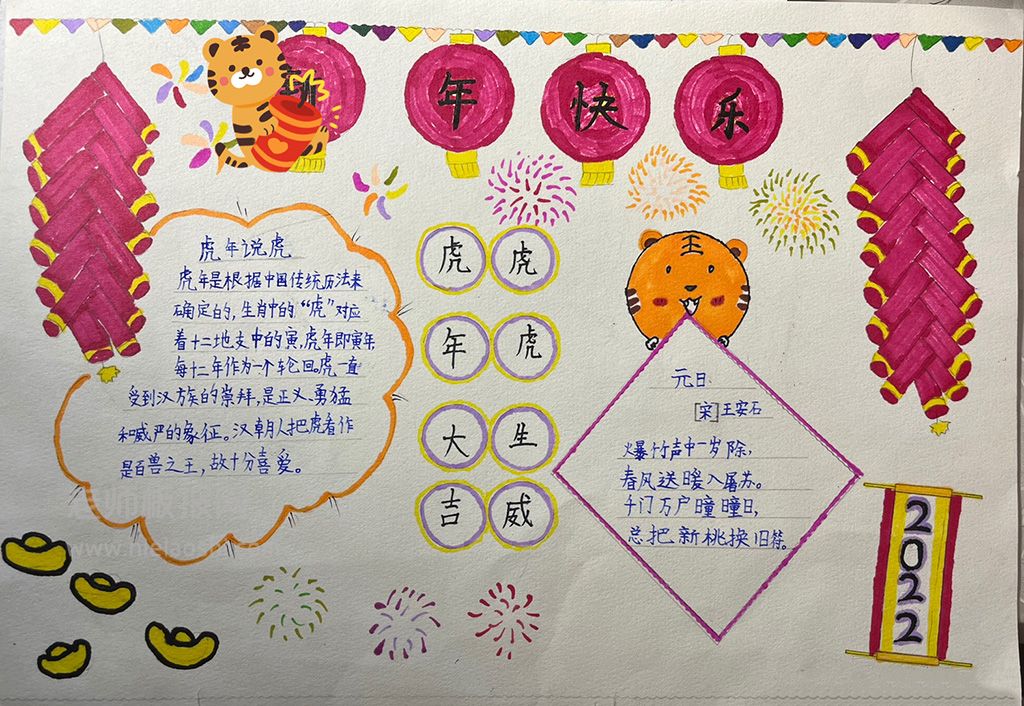 年快乐
虎年说虎
虎年是根据中国传统历法来
确定的,生肖中的“虎”对应
着十二地支中的寅,虎年即寅年,
每十二年作为一个轮回。虎一直
受到汉族的崇拜,是正义、勇猛
和威严的象征。汉朝人把虎看作
是百兽之王,故十分喜爱。
虎虎
年虎
大生
吉威
王
元日
[宋]王安石
爆竹声中一岁除,
春风送暖入屠苏。
千门万户曈曈日,
总把新桃换旧符。
2022